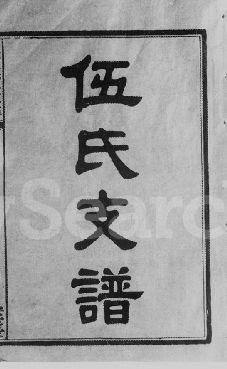 伍氏支譜